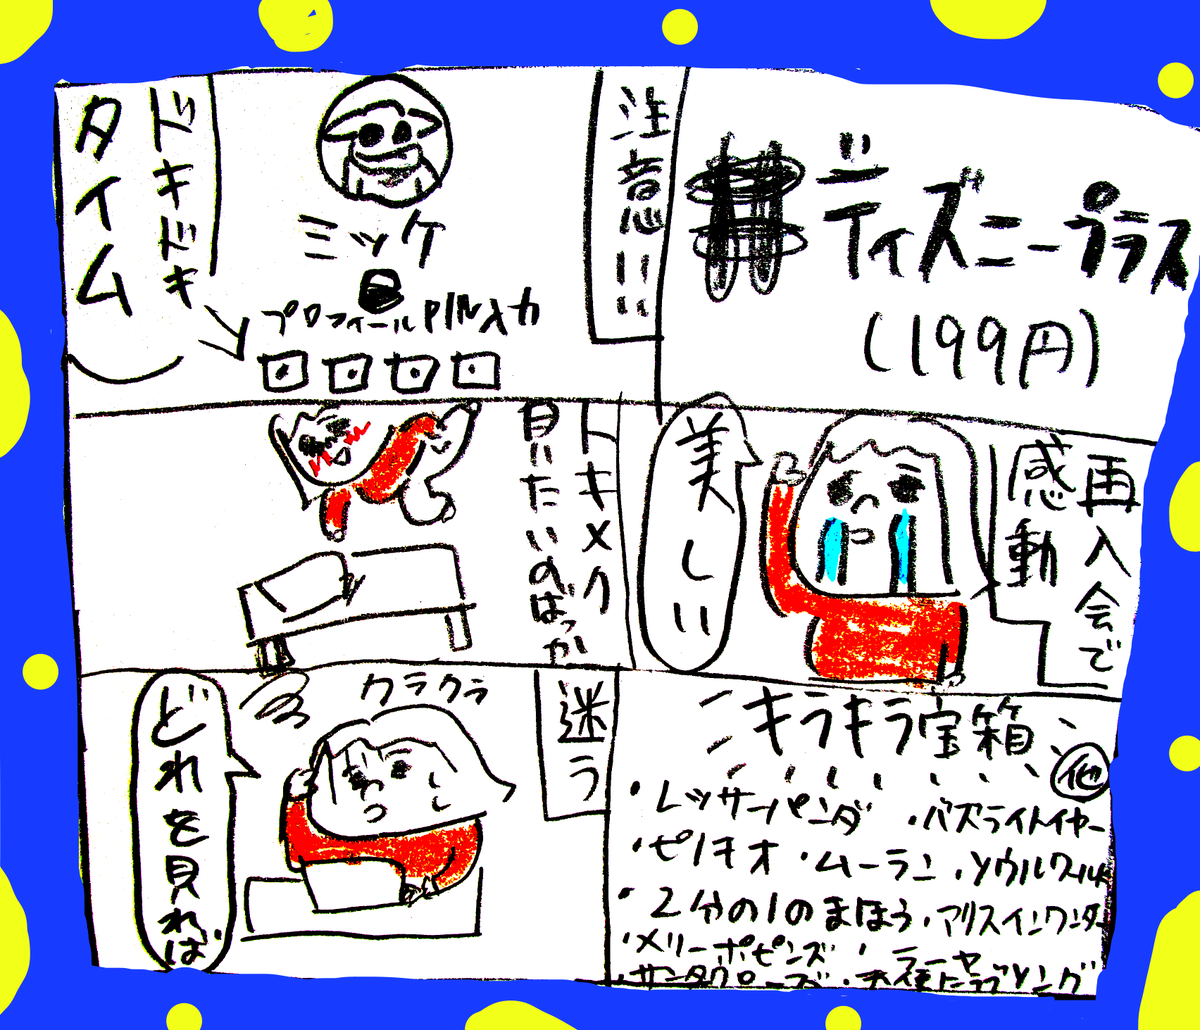 ディズニープラス
(199円)
注意!!
ミッケ
プロフィールPIN入力
ドキドキ
タイム
再入会で
感動
美しい
トキメク
見たいのばっか
キラキラ宝箱
他
・レッサーパンダ ・バズライトイヤー
・ピノキオ ・ムーラン ・ソウルワールド
・2分の1のまほう ・アリスインワンダー
・メリーポピンズ ・ラーヤ
・サンタクローズ ・天使にラブソング
迷う
クラクラ
どれを見れば